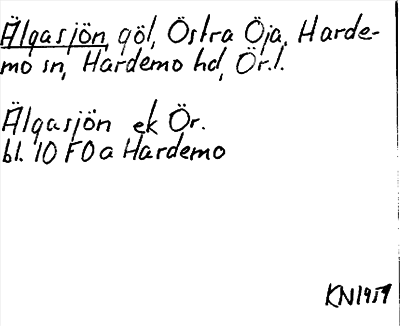 Älgasjön, göl, Östra Öja, Harde-
mo sn, Hardemo hd, Ör.l.
Älgasjön ek Ör.
bl. 10 F0a Hardemo
KN1959